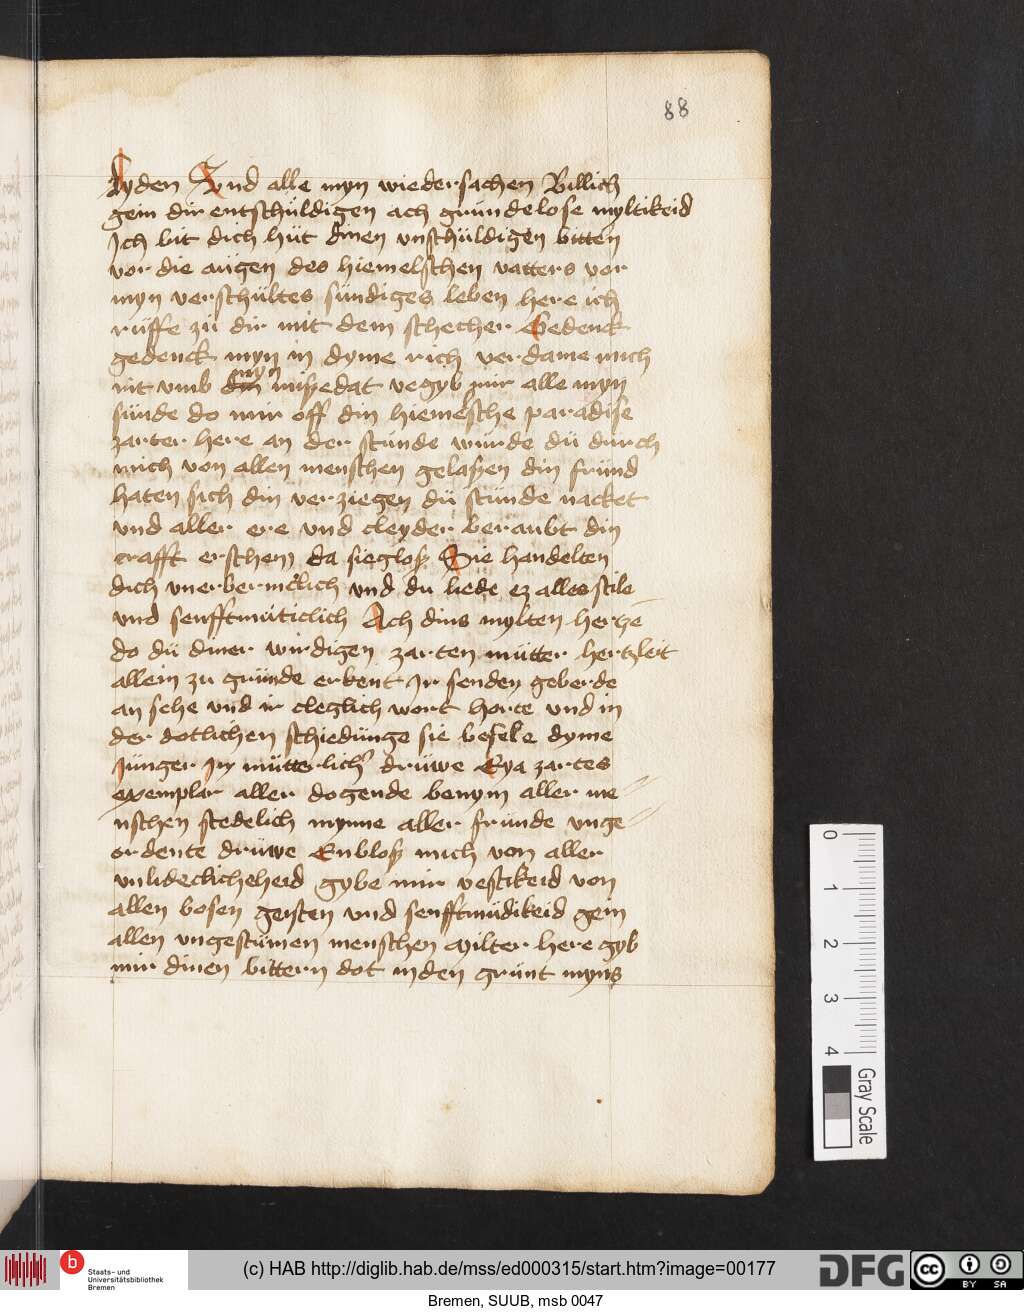 88
lyden Vnd alle myn wiedersachen Billich
gein dir entschüldigen ach gründelose myltikeid
Ich bit dich hüt dinen vnschüldigen bitten
vor die aügen des hiemelschen vatters vor
myn verschültes sündiges leben here ich
rüffe zü dir mit dem schecher Gedenck
gedenck myn in dyme rich verdame mich
nit vmb myn missedat vegyb mir alle myn
sünde do mir off din hiemelsche paradise
zarter here an der stünde würde dü dürch
mich von allen menschen gelaßen din fründ
haten sich din verziegen dü stünde nacket
vnd aller ere vnd cleyder beraubt din
crafft erschein da siegloß Sie handelten
dich vnerbermclich vnd du liede ez alles stile
vnd senfftmüticlich Ach dins mylten hertze
do dü diner wirdigen zarten mütter hertzleit
allein zu gründe erkent Ir senden geberde
an sehe vnd ir cleglich wort horte vnd in
der dotlichen schiedünge sie befele dyme
Jünger Jn mütterlich' drüwe Eya zartes
exemplar aller dogende benym aller me
nschen stedelich mynne aller fründe vnge
ordente drüwe Enbloß mich von aller
vnlideclicheheid gybe mir vestikeid von
allen bosen geisten vnd senfftmüdikeid gein
allen vngestümen menschen Milter here gyb
mir dinen bittern dot in den grünt myns
0
1
2
3
4
Gray Scale
b
Staats- und
Universitätsbibliothek
Bremen
(c) HAB http://diglib.hab.de/mss/ed000315/start.htm?image=00177
DFG
cc
BY SA
Bremen, SUUB, msb 0047